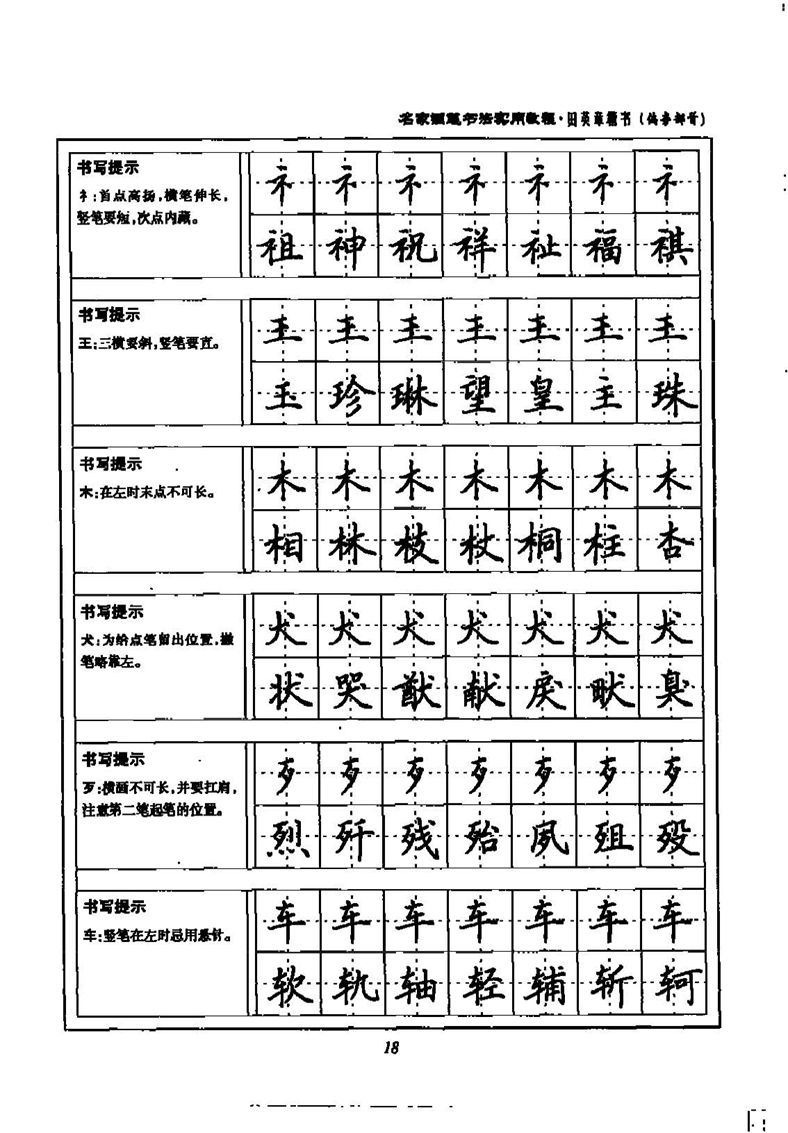 名家钢笔书法实用教程·田英章楷书(偏旁部首)
书写提示
礻:首点高扬,横笔伸长,
竖笔要短,次点内藏。
礻礻礻礻礻礻礻
祖神祝祥祉福祺
书写提示
王:三横要斜,竖笔要直。
王王王王王王王
玉珍琳望皇主珠
书写提示
木:在左时末点不可长。
木木木木木木木
相林枝杖桐柱杏
书写提示
犬:为给点笔留出位置,撇
笔略靠左。
犬犬犬犬犬犬犬
状哭猷献戾畎臭
书写提示
歹:横画不可长,并要扛肩,
注意第二笔起笔的位置。
歹歹歹歹歹歹歹
烈歼残殆夙殂殁
书写提示
车:竖笔在左时忌用悬针。
车车车车车车车
软轨轴轻辅斩轲
18